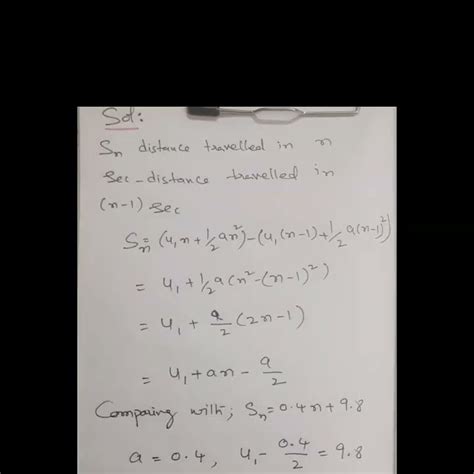 Sol:
Sn distance travelled in n
Sec - distance travelled in
(n-1) Sec
Sn = (u₁n + 1/2 an²) - (u₁(n-1) + 1/2 a(n-1)²)
= u₁ + 1/2 a(n² - (n-1)²)
= u₁ + a/2 (2n-1)
= u₁ + an - a/2
Comparing with; Sn = 0.4n + 9.8
a = 0.4, u₁ - 0.4/2 = 9.8